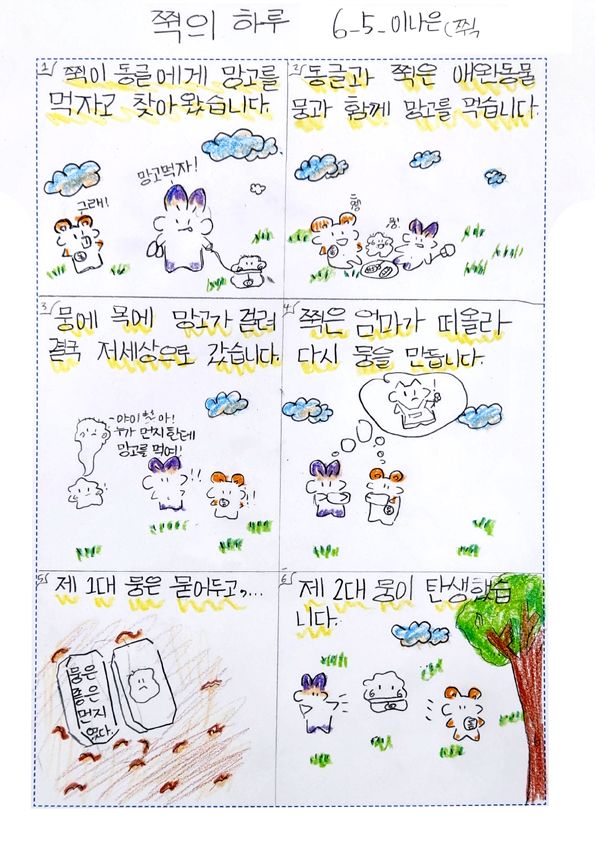 쮝의 하루 6-5 이나은(쮝
1 쮝이 동글에게 망고를
먹자고 찾아왔습니다.
그래!
망고먹자!
2 동글과 쮝은 애완동물
뭉과 함께 망고를 먹습니다.
3 뭉에 목에 망고가 걸려
결국 저세상으로 갔습니다.
누가 먼지한테
망고를 먹여!
!!
!!
4 쮝은 엄마가 떠올라
다시 뭉을 만듭니다.
5 제 1대 뭉은 묻어두고,...
뭉은
좋은
먼지
였다.
6 제 2대 뭉이 탄생했습
니다.